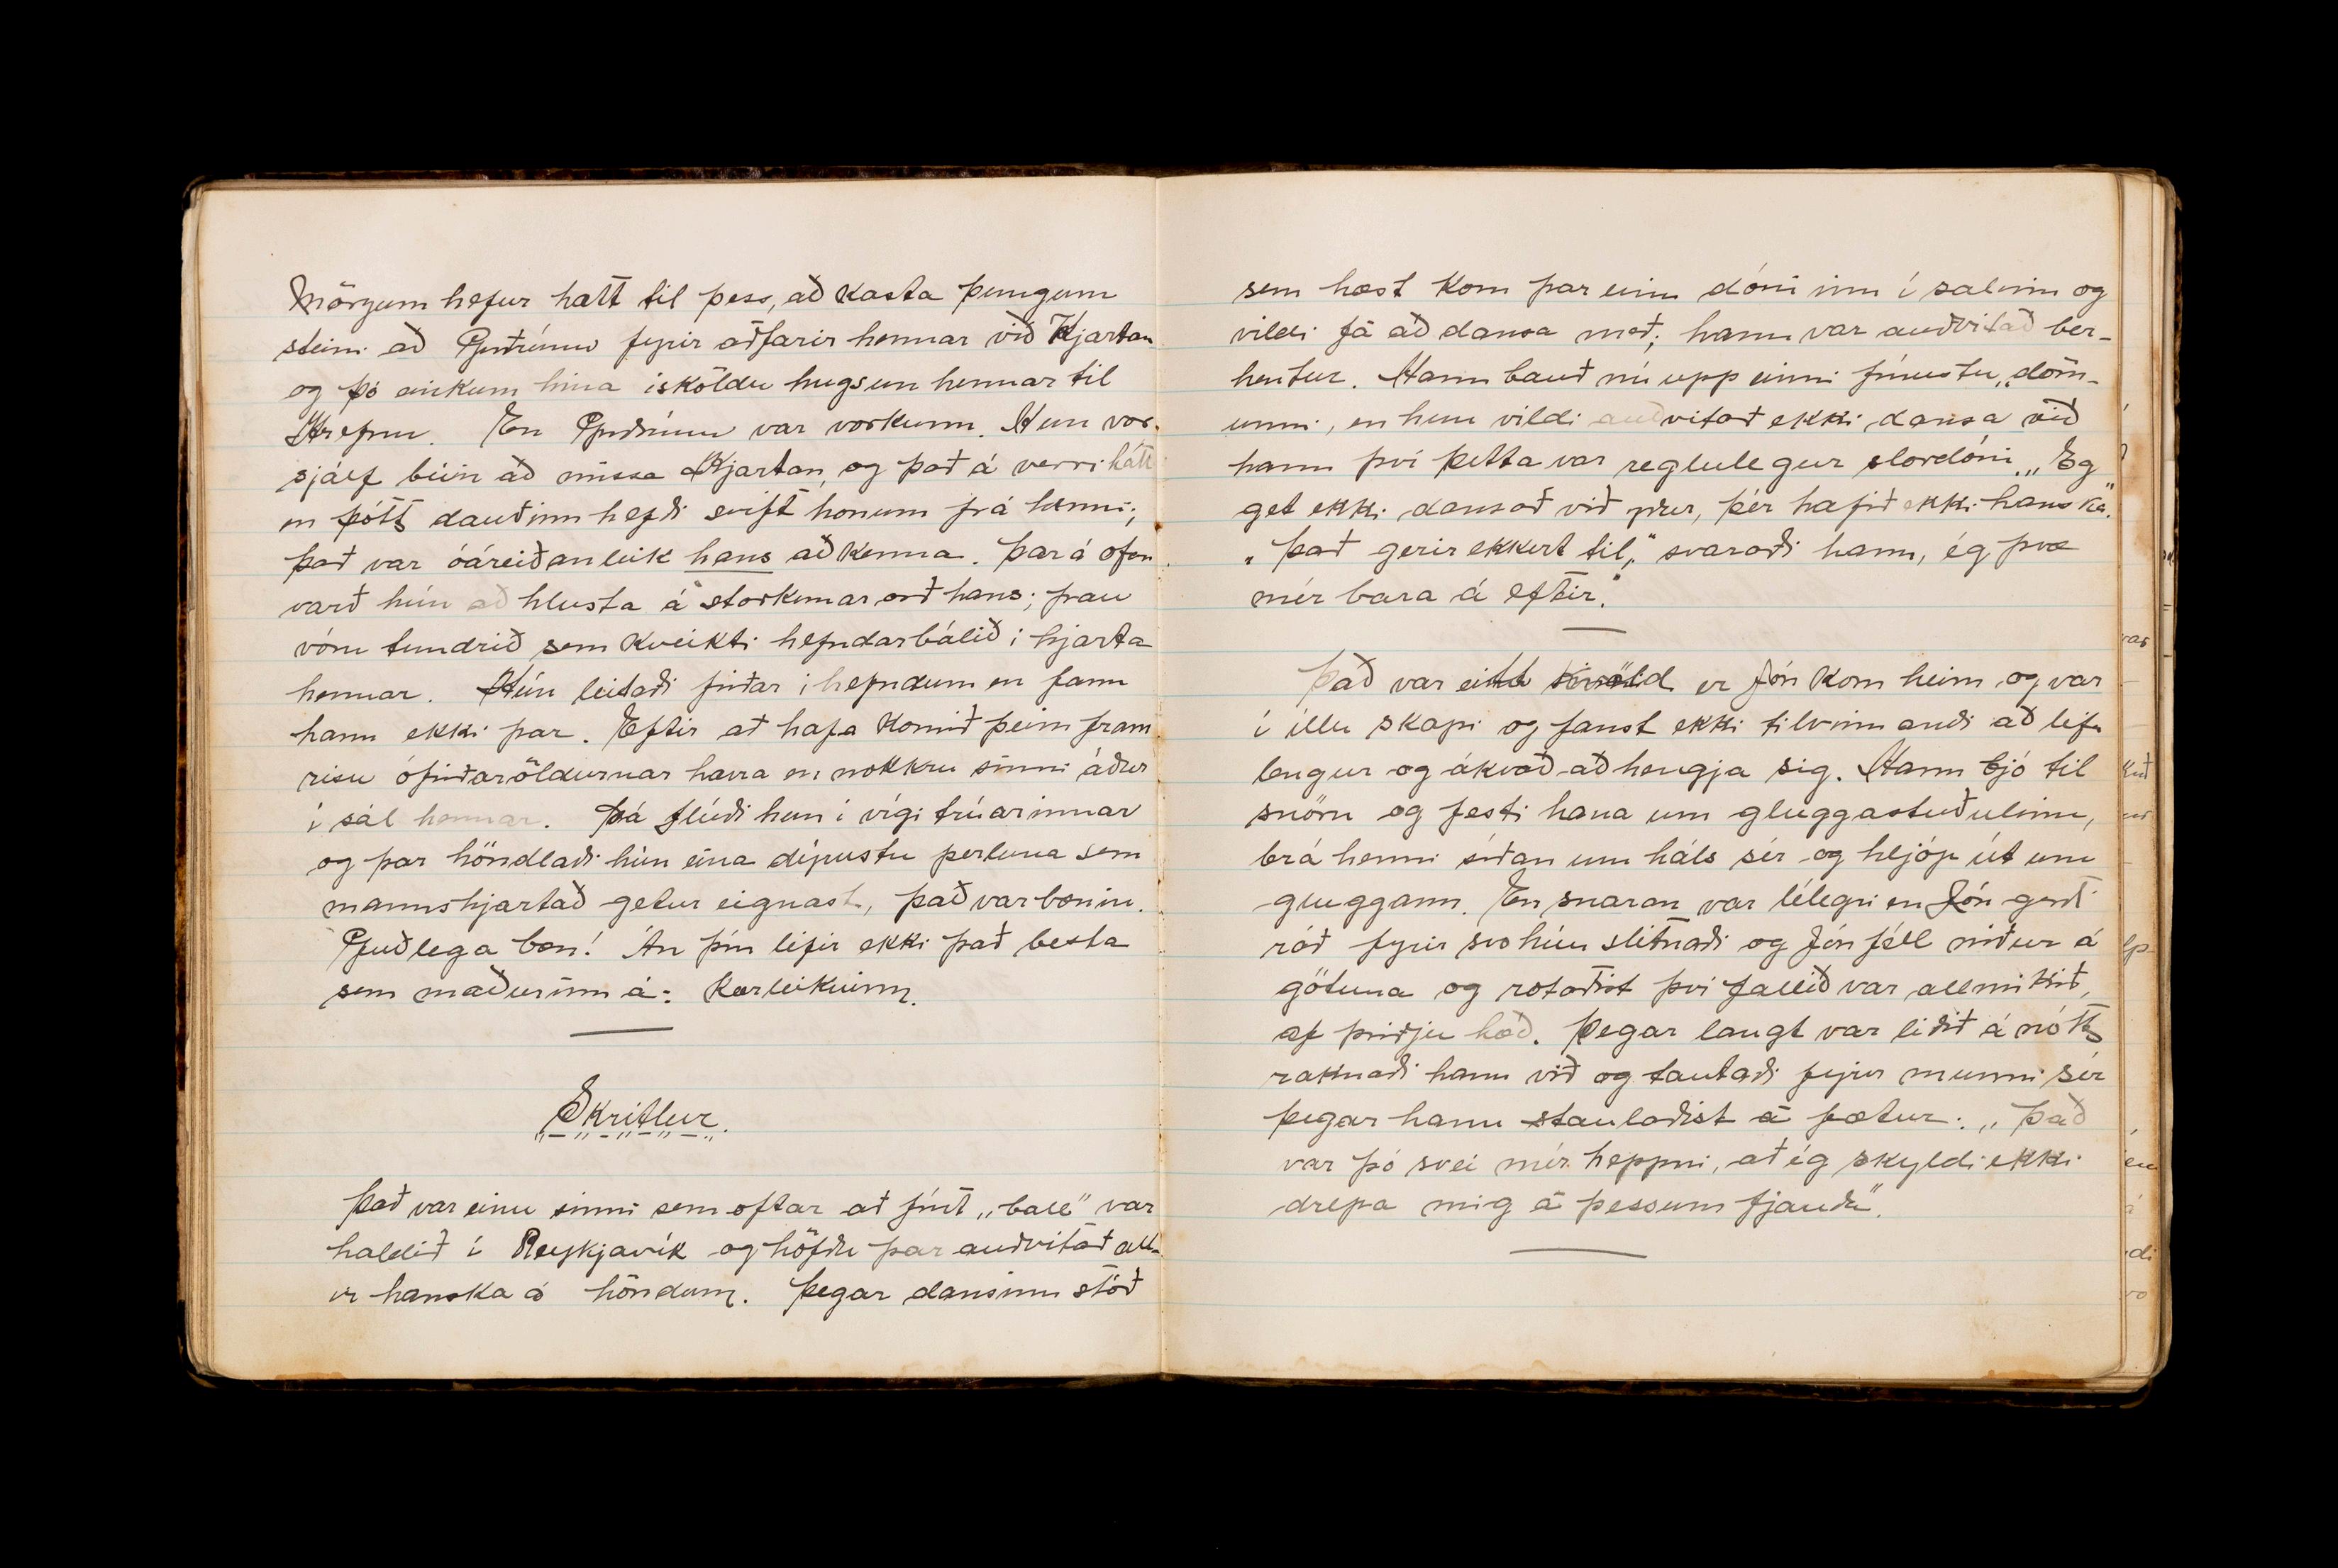 Mörgum hefur hætt til þess, að kasta þungum
steini að Guðrúnu fyrir aðfarir hennar við Kjartan
og þó einkum hina ísköldu hugsun hennar til
Hrefnu. En Guðrúnu var vorkunn. Hun var
sjálf búin að missa Kjartan, og það á verri hátt
en þótt dauðinn hefði svift honum frá henni;
það var óáreiðanleik hans að kenna. Þar á ofan
varð hún að hlusta á storkunar orð hans; þau
vóru tundrið sem kveikti hefndarbálið í hjarta
hennar. Hún leitaði friðar í hefndum en fann
hann ekki þar. Eftir að hafa komið þeim fram
risu ófriðaröldurnar hærra en nokkru sinni áður
í sál hennar. Þá flúði hun í vígi trúarinnar
og þar höndlaði hún eina dýrustu perluna sem
mannshjartað getur eignast, það var bænin.
Guðlega bæn! Án þín lifir ekki það besta
sem maðurinn á: Kærleikurinn.
Skritlur.
Það var einu sinni sem oftar að fínt „ball" var
haldið í Reykjavík og höfðu þar auðvitað all-
ir hanska á höndum. Þegar dansinn stóð
sem hæst kom þar einn dóni inn í salinn og
vildi fá að dansa með; hann var auðvitað ber-
hentur. Hann bauð nú upp einni fínustu „döm-
unni, en hun vildi auðvitað ekki dansa við
hann því þetta var reglulegur slordóni. „Eg
get ekki dansað við yður, þér hafið ekki hanska".
„Það gerir ekkert til," svaraði hann, ég þvæ
mér bara á eftir."
Það var eitt kvöld er Jón kom heim og var
í illu skapi og fanst ekki tilvinnandi að lifa
lengur og ákvað að hengja sig. Hann bjó til
snöru og festi hana um gluggastuðulinn,
brá henni síðan um háls sér og hljóp út um
gluggann. En snaran var lélegri en Jón gerði
ráð fyrir svo hún slitnaði og Jón féll niður á
götuna og rotaðist því fallið var allmikið,
af þriðju hæð. Þegar langt var liðið á nótt
raknaði hann við og tautaði fyrir munni sér
þegar hann staulaðist á fætur: „Það
var þó svei mér heppni, að ég skyldi ekki
drepa mig á þessum fjanda".